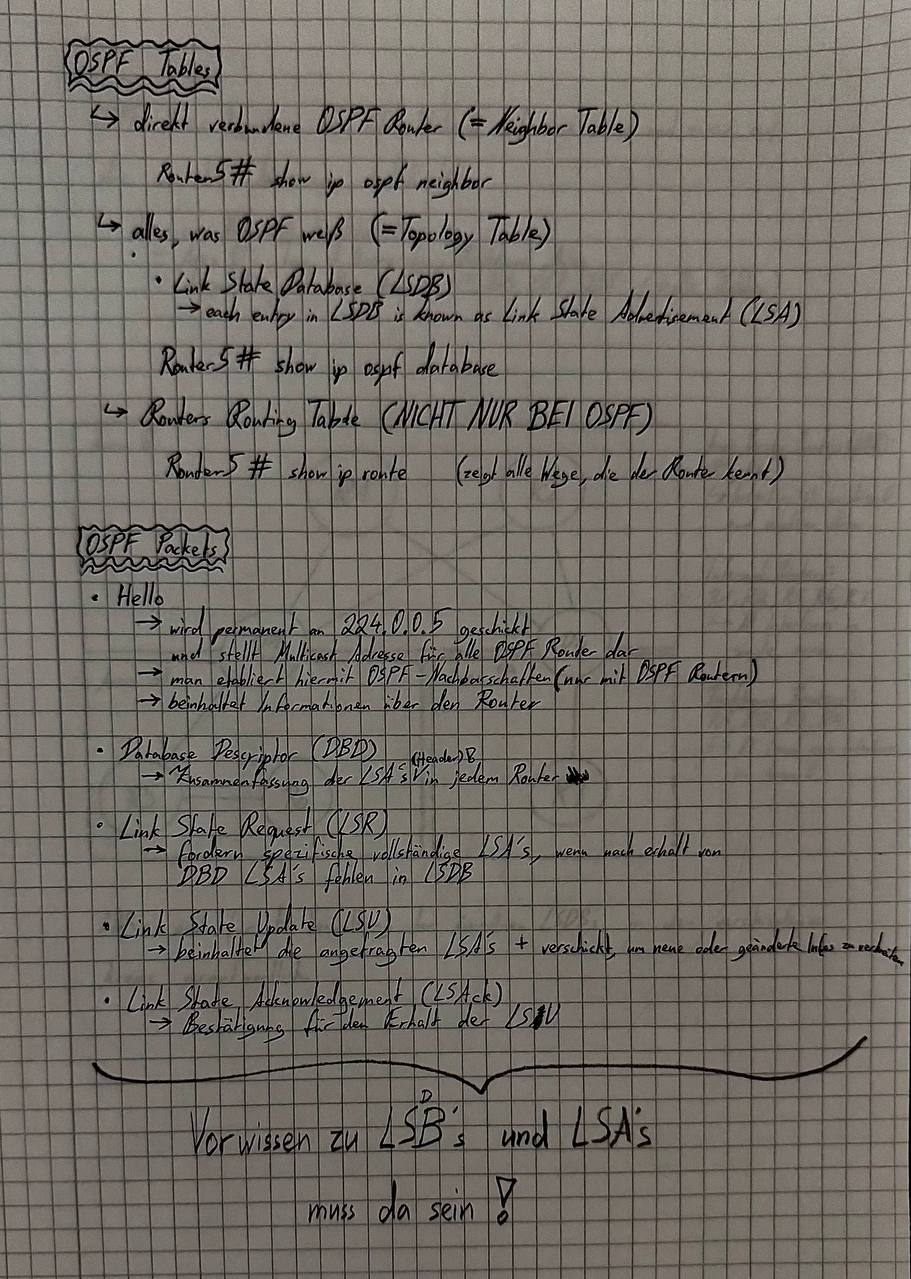 OSPF Tables
↳ direkt verbundene OSPF Router (= Neighbor Table)
Router5# show ip ospf neighbor
↳ alles, was OSPF weiß (=Topology Table)
• Link State Database (LSDB)
→ each entry in LSDB is known as Link State Advertisement (LSA)
Router5# show ip ospf database
↳ Routers Routing Table (NICHT NUR BEI OSPF)
Router5 # show ip route (zeigt alle Wege, die der Router kennt)
OSPF Packets
• Hello
→ wird permanent an 224.0.0.5 geschickt
und stellt Multicast Adresse für alle OSPF Router dar
→ man etabliert hiermit OSPF-Nachbarschaften (nur mit OSPF Routern)
→ beinhaltet Informationen über den Router
• Database Descriptor (DBD)
→ Zusammenfassung der LSA's (Header) in jedem Router
• Link State Request (LSR)
→ fordern spezifische vollständige LSA's, wenn nach erhalt von
DBD LSA's fehlen in LSDB
• Link State Update (LSU)
→ beinhaltet die angefragten LSA's + verschickt, um neue oder geänderte Infos zu
• Link State Acknowledgement (LSAck)
→ Bestätigung für den Erhalt der LSU
Vorwissen zu LSDB's und LSA's
muss da sein !